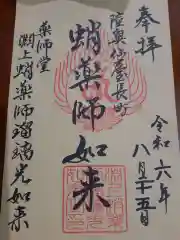 奉拝
令和六年
八月二十五日
陸奥仙臺長町
蛸薬師如来
薬師堂
渕上蛸薬師瑠璃光如来